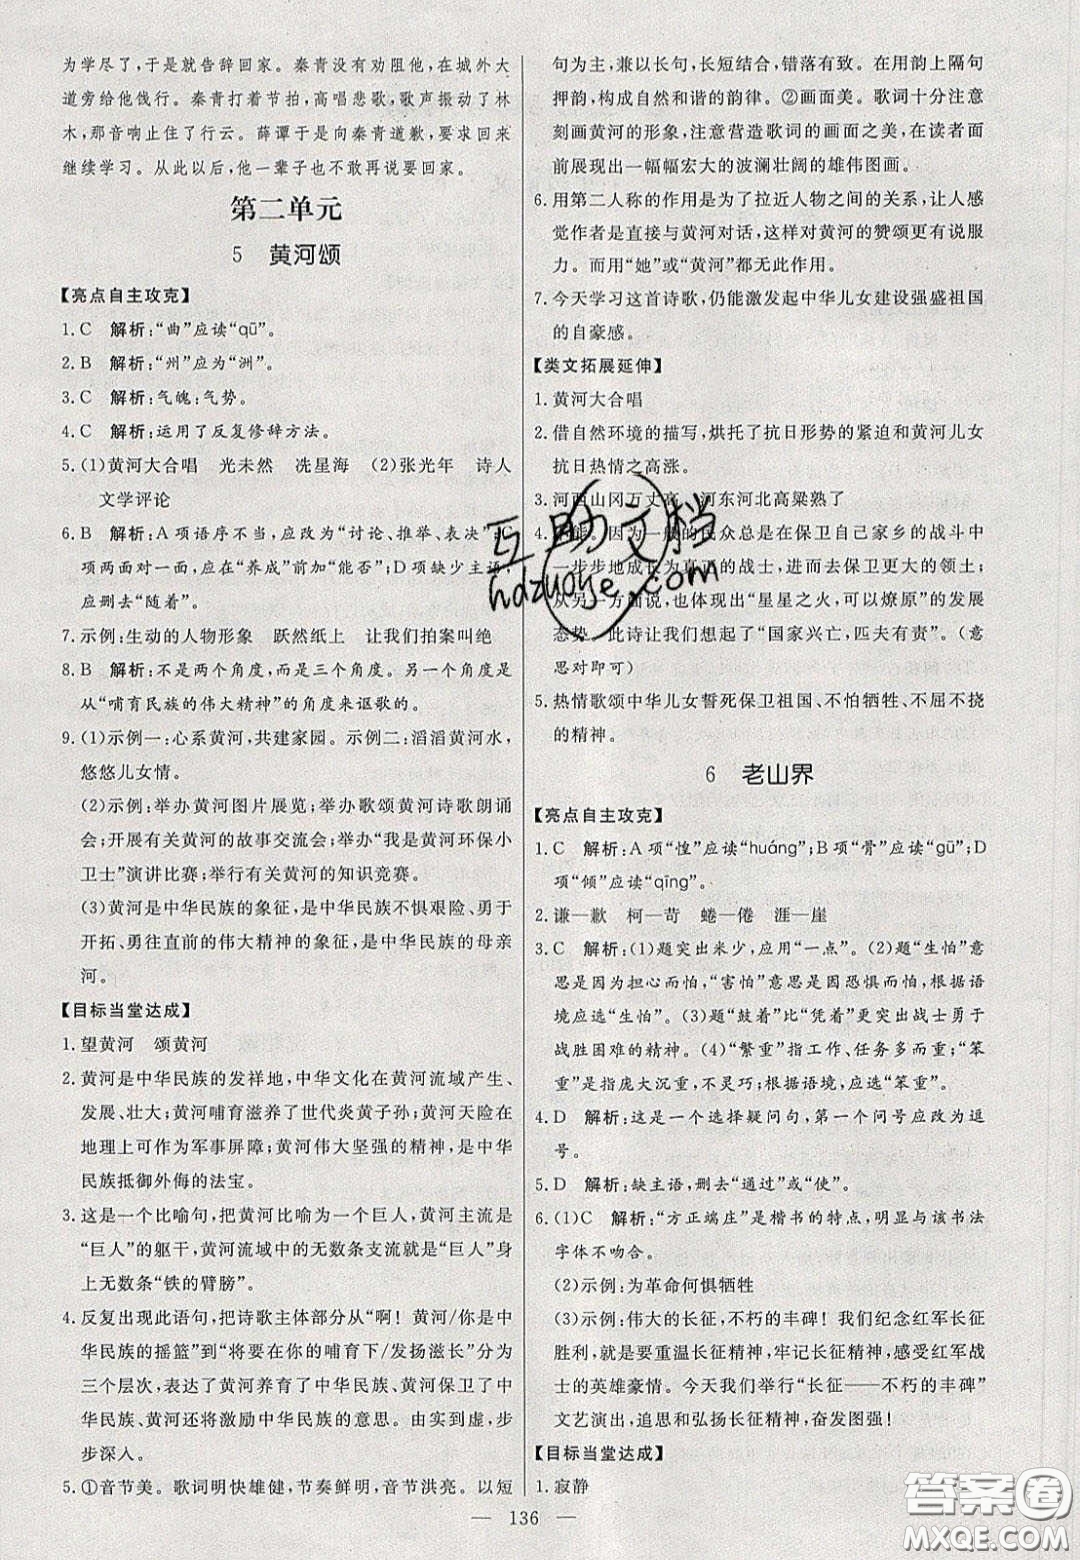 为学尽了,于是就告辞回家。秦青没有劝阻他,在城外大
道旁给他饯行。秦青打着节拍,高唱悲歌,歌声振动了林
木,那音响止住了行云。薛谭于是向秦青道歉,要求回来
继续学习。从此以后,他一辈子也不敢再说要回家。
第二单元
5 黄河颂
【亮点自主攻克】
1. C 解析:“曲”应读“qū”。
2. B 解析:“州”应为“洲”。
3. C 解析:气魄:气势。
4. C 解析:运用了反复修辞方法。
5. (1)黄河大合唱 光未然 冼星海 (2)张光年 诗人
文学评论
6. B 解析:A项语序不当,应改为“讨论、推举、表决”;C
项两面对一面,应在“养成”前加“能否”;D项缺少主语,
应删去“随着”。
7. 示例:生动的人物形象 跃然纸上 让我们拍案叫绝
8. B 解析:不是两个角度,而是三个角度。另一个角度是
从“哺育民族的伟大精神”的角度来讴歌的。
9. (1)示例一:心系黄河,共建家园。示例二:滔滔黄河水,
悠悠儿女情。
(2)示例:举办黄河图片展览;举办歌颂黄河诗歌朗诵
会;开展有关黄河的故事交流会;举办“我是黄河环保小
卫士”演讲比赛;举行有关黄河的知识竞赛。
(3)黄河是中华民族的象征,是中华民族不惧艰险、勇于
开拓、勇往直前的伟大精神的象征,是中华民族的母亲
河。
【目标当堂达成】
1. 望黄河 颂黄河
2. 黄河是中华民族的发祥地,中华文化在黄河流域产生、
发展、壮大;黄河哺育滋养了世代炎黄子孙;黄河天险在
地理上可作为军事屏障;黄河伟大坚强的精神,是中华
民族抵御外侮的法宝。
3. 这是一个比喻句,把黄河比喻为一个巨人,黄河主流是
“巨人”的躯干,黄河流域中的无数条支流就是“巨人”身
上无数条“铁的臂膀”。
4. 反复出现此语句,把诗歌主体部分从“啊！黄河/你是中
华民族的摇篮”到“将要在你的哺育下/发扬滋长”分为
三个层次,表达了黄河养育了中华民族、黄河保卫了中华
民族、黄河还将激励中华民族的意思。由实到虚,步
步深入。
5. ①音节美。歌词明快雄健,节奏鲜明,音节洪亮。以短
句为主,兼以长句,长短结合,错落有致。在韵脚上隔句
押韵,构成自然和谐的韵律。②画面美。歌词十分注意
刻画黄河的形象,注意营造歌词的画面之美,在读者面
前展现出一幅幅宏大的波澜壮阔的雄伟图画。
6. 用第二人称的作用是为了拉近人物之间的关系,让人感
觉作者是直接与黄河对话,这样对黄河的赞颂更有说服
力。而用“她”或“黄河”都无此作用。
7. 今天学习这首诗歌,仍能激发起中华儿女建设强盛祖国
的自豪感。
【类文拓展延伸】
1. 黄河大合唱
2. 借自然环境的描写,烘托了抗日形势的紧迫和黄河儿女
抗日热情之高涨。
3. 河西山冈万丈高 河东河北高粱熟了
4. 不能。因为一般的民众总是在保卫自己家乡的战斗中
一步步地成长为真正的战士,进而去保卫更大的领土;
从另一方面说,也体现出“星星之火,可以燎原”的发展
态势。此诗让同学们想起了“国家兴亡,匹夫有责”。(意
思对即可)
5. 热情歌颂中华儿女誓死保卫祖国、不怕牺牲、不屈不挠
的精神。
6 老山界
【亮点自主攻克】
1. C 解析:A项“惶”应读“huáng”;B项“骨”应读“gū”;D
项“倾”应读“qīng”。
2. 谦—歉 柯—苛 蜷—倦 涯—崖
3. C 解析:(1)题突出米少,应用“一点”。(2)题“生怕”意
思是因为担心而怕,“害怕”意思是因恐惧而怕,根据语
境应选“生怕”。(3)题“鼓着”比“凭着”更突出战士勇于
战胜困难的精神。(4)“繁重”指工作、任务多而重;“笨
重”是指庞大沉重,不灵巧;根据语境,应选“笨重”。
4. D 解析:这是一个选择疑问句,第一个问号应改为逗
号。
5. D 解析:缺主语,删去“通过”或“使”。
6. (1)C 解析:“方正端庄”是楷书的特点,与该书法
字体不吻合。
(2)示例:为革命何惧牺牲
(3)示例:伟大的长征,不朽的丰碑！我们纪念红军长征
胜利,就是要重温长征精神,牢记长征精神,感受红军战
士的英雄豪情。今天我们举行“长征——不朽的丰碑”
文艺演出,追思和弘扬长征精神,奋发图强！
【目标当堂达成】
1. 寂静
— 136 —
互助文档
hdzuoye.com
答案圈
MXQE.COM